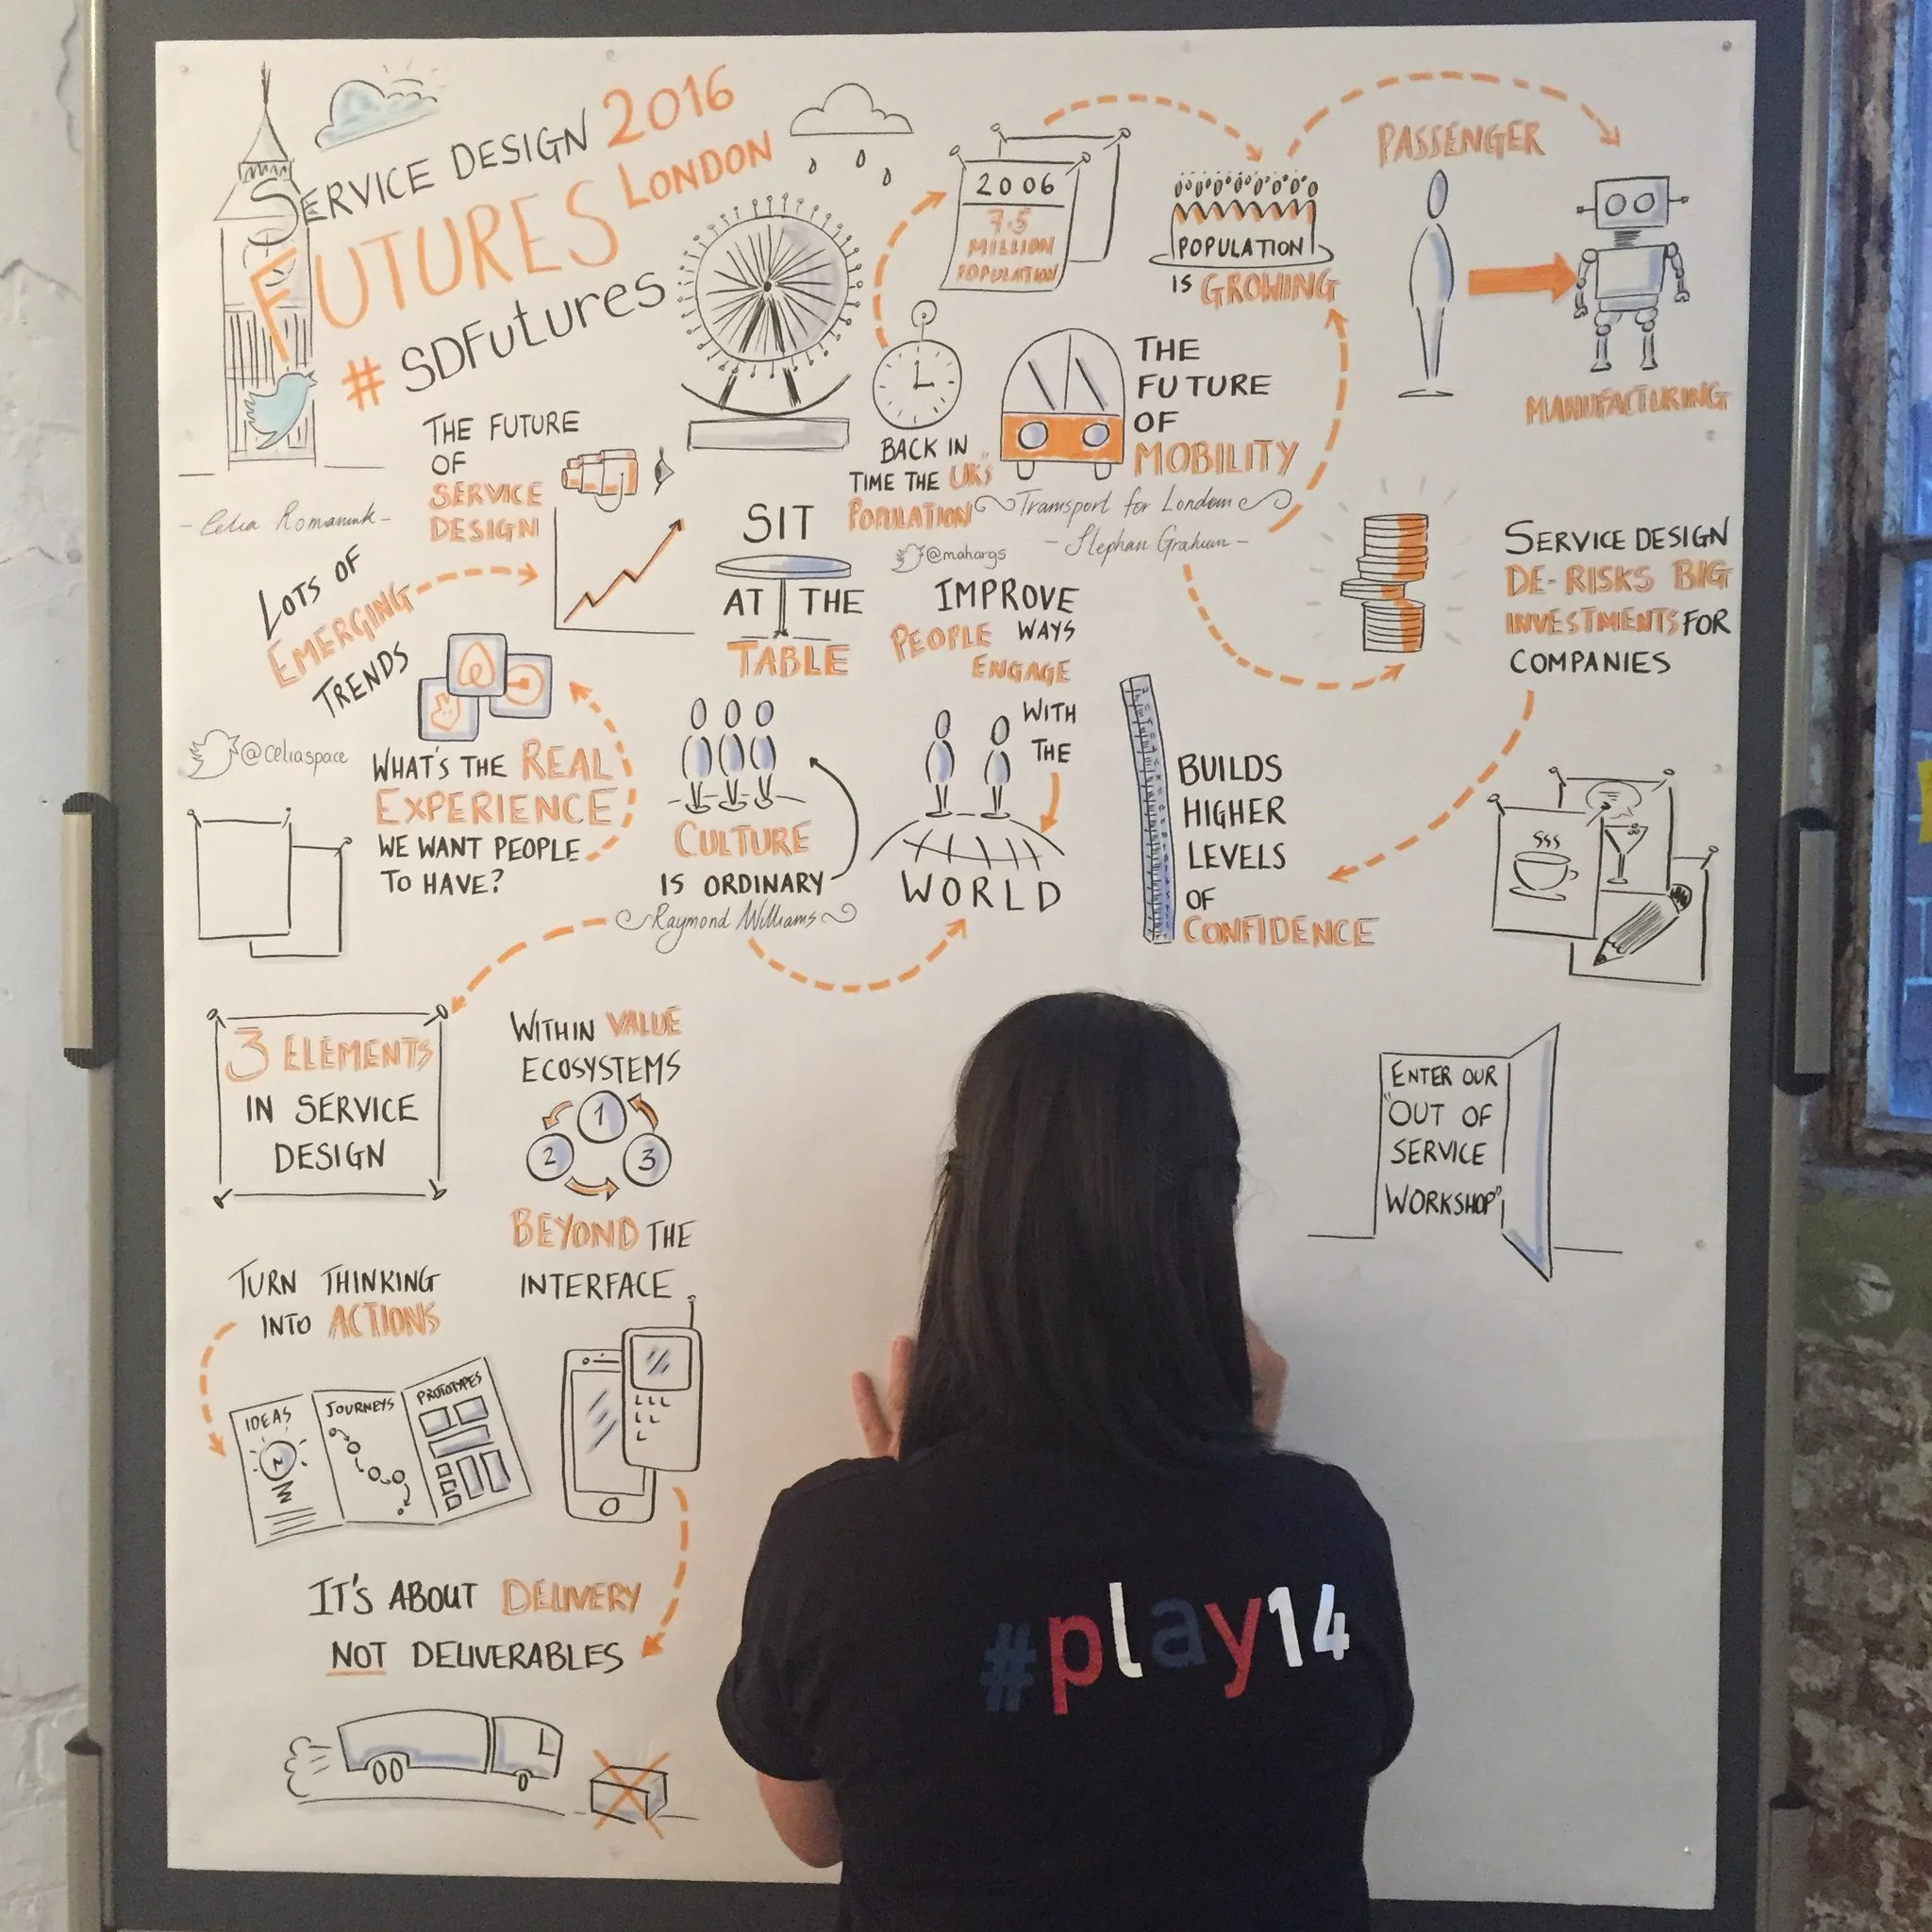 SERVICE DESIGN 2016
FUTURES LONDON
# SDFutures
THE FUTURE
OF
SERVICE
DESIGN
- Celia Romaniuk -
LOTS OF
EMERGING
TRENDS
@celiaspace
WHAT'S THE REAL
EXPERIENCE
WE WANT PEOPLE
TO HAVE?
SIT
AT THE
TABLE
CULTURE
IS ORDINARY
Raymond Williams
BACK IN
TIME THE UK'S
POPULATION
2006
7.5
MILLION
POPULATION
POPULATION
IS GROWING
PASSENGER
MANUFACTURING
THE
FUTURE
OF
MOBILITY
Transport for London
- Stephan Graham -
@mahargs
IMPROVE
PEOPLE WAYS
ENGAGE
WITH
THE
WORLD
SERVICE DESIGN
DE-RISKS BIG
INVESTMENTS FOR
COMPANIES
BUILDS
HIGHER
LEVELS
OF
CONFIDENCE
3 ELEMENTS
IN SERVICE
DESIGN
WITHIN VALUE
ECOSYSTEMS
1
2 3
BEYOND THE
INTERFACE
TURN THINKING
INTO ACTIONS
IDEAS
JOURNEYS
PROTOTYPES
IT'S ABOUT DELIVERY
NOT DELIVERABLES
ENTER OUR
"OUT OF
SERVICE
WORKSHOP"
#play14